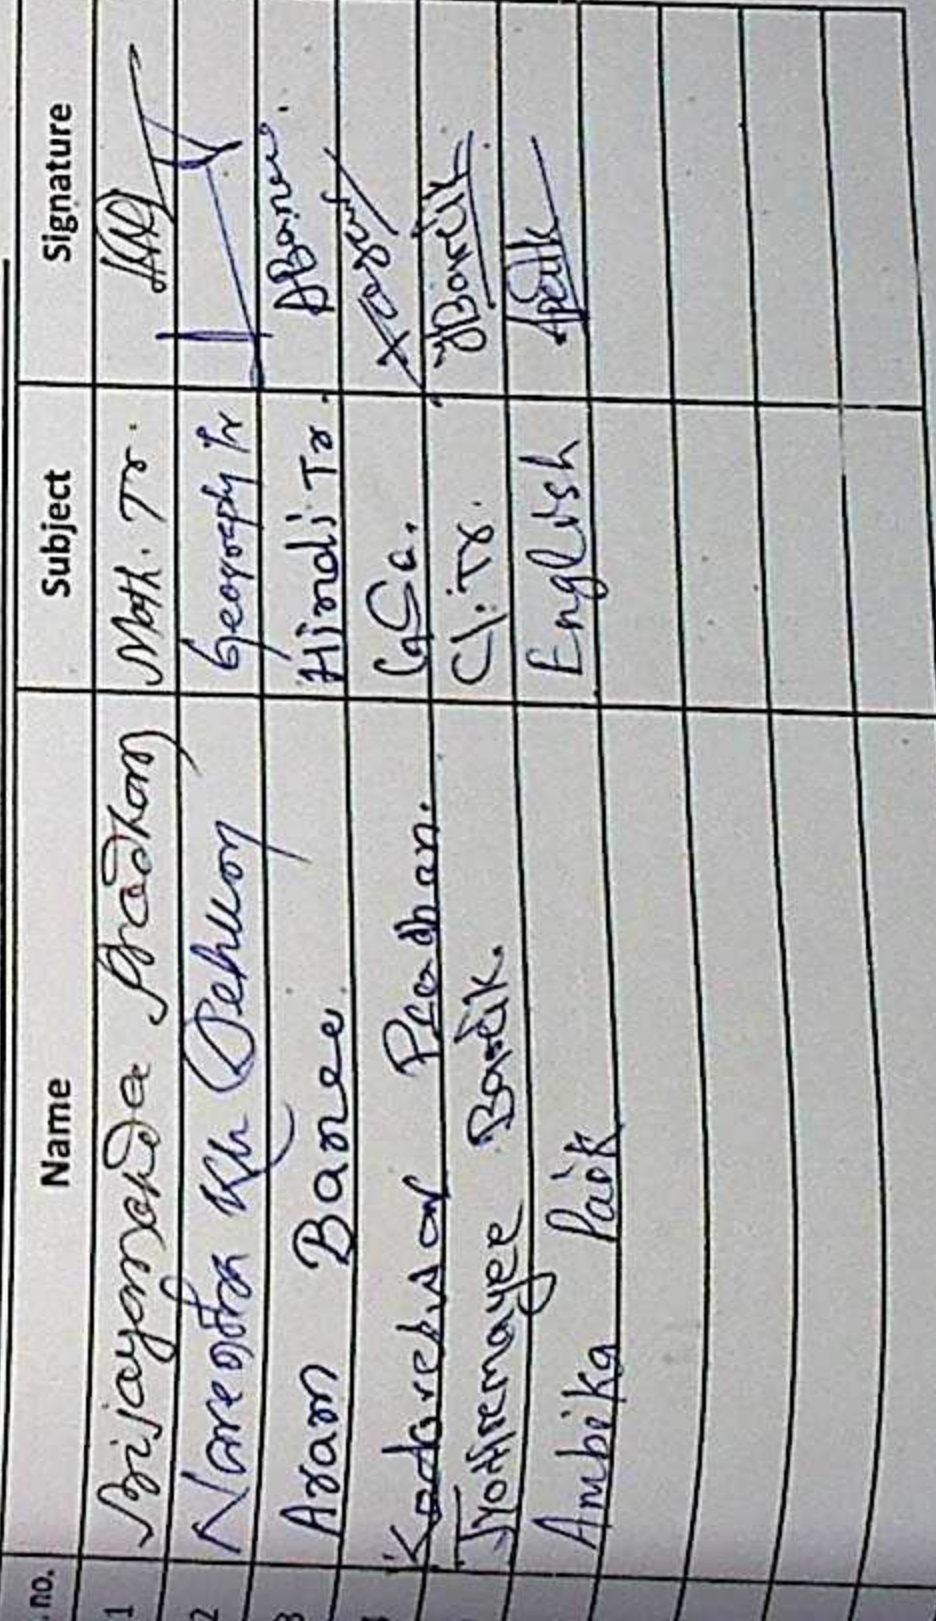 . no. Name Subject Signature
1 Bijayananda Pradhan Math. Tr.
2 Narendra Kh Hindi Tr
3 Aram Baree Hindi Tr. ABaree.
Kadareswar Pradhan. GSc.
Jyotiremayee Barik. Cl. Tr. JBarik
Ambika Paik English APaik